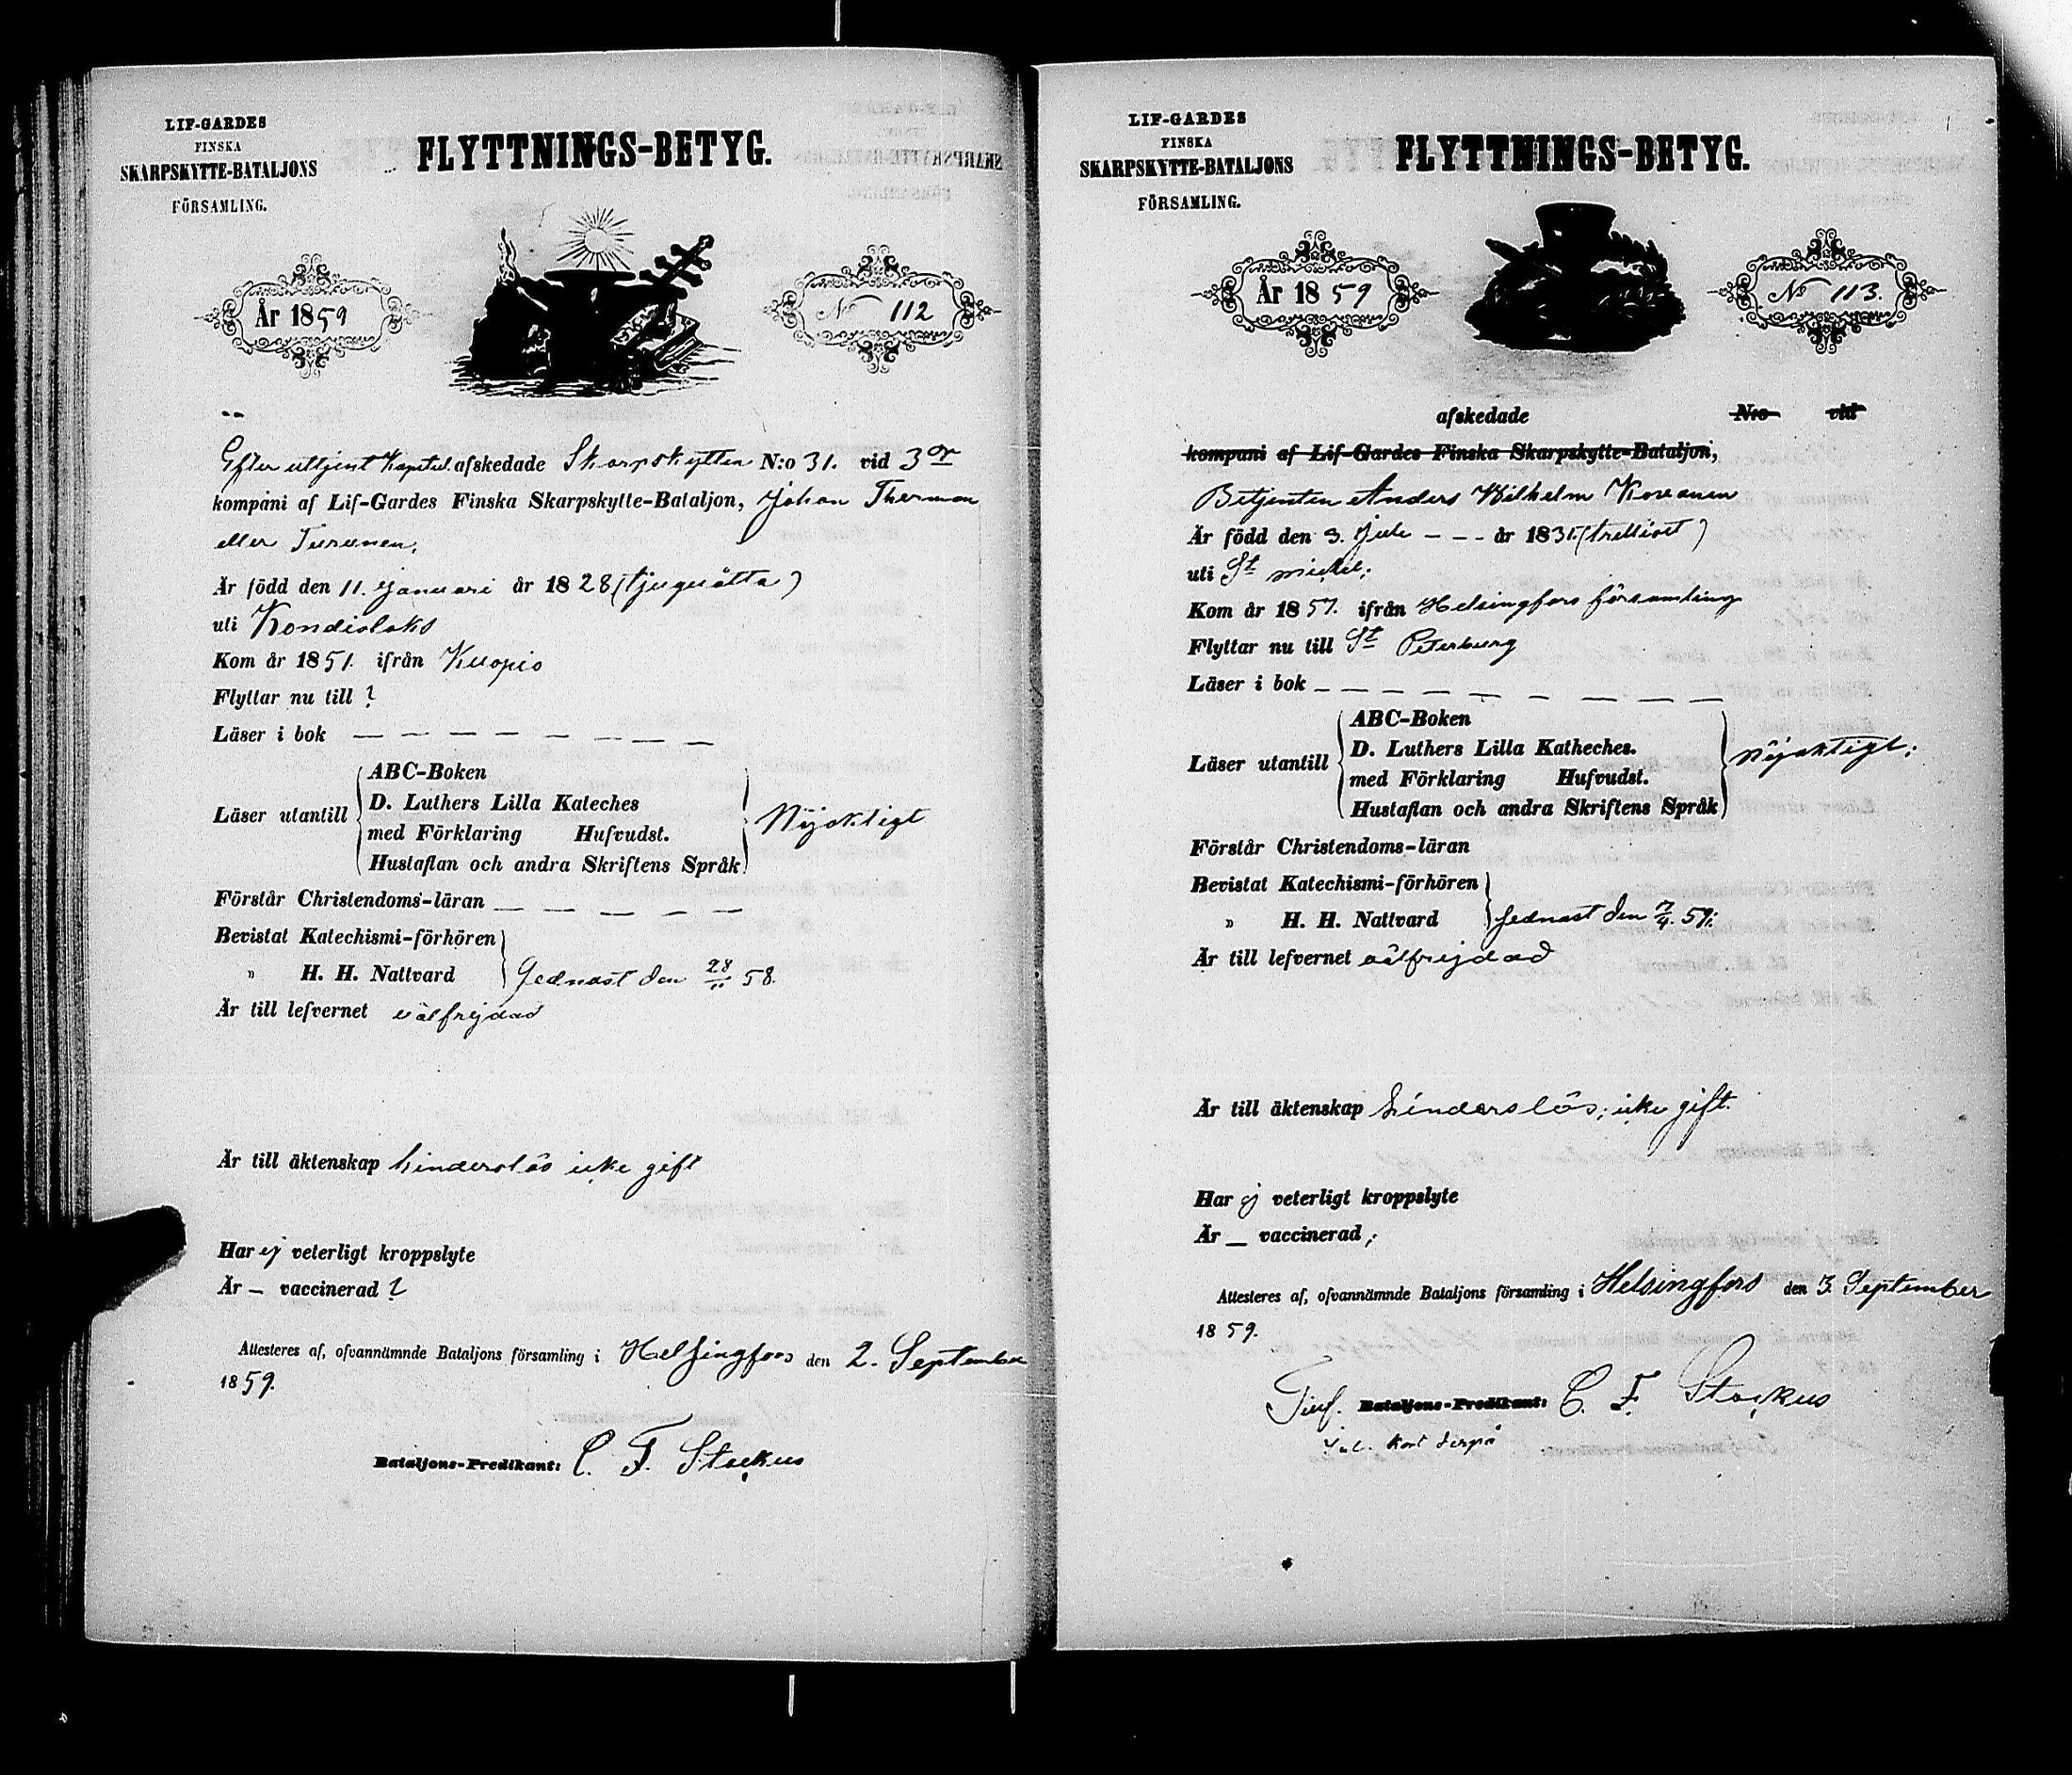 LIF-GARDES
FINSKA
SKARPSKYTTE-BATALJONS
FÖRSAMLING.
FLYTTNINGS-BETYG.
År 1859
No 112
Efter uttjent Kapitul. afskedade Skarpskytten N:o 31. vid 3or
kompani af Lif-Gardes Finska Skarpskytte-Bataljon, Johan Therman
eller Turunen,
Är född den 11. Januari år 1828 (tjuguåtta)
uti Kondislaks
Kom år 1851. ifrån Kuopio
Flyttar nu till ?
Läser i bok — — — — — — — —
Läser utantill
ABC-Boken
D. Luthers Lilla Kateches
med Förklaring Hufvudst.
Hustaflan och andra Skriftens Språk
Nöjaktigt
Förstår Christendoms-läran — — — — —
Bevistat Katechismi-förhören
" H. H. Nattvard Sednast den 28/11 58.
Är till lefvernet välfrejdad
Är till äktenskap hinderslös icke gift
Har ej veterligt kroppslyte
Är — vaccinerad ?
Attesteres af, ofvannämnde Bataljons församling i Helsingfors den 2. September
1859.
Bataljons-Predikant: C. F. Stockus
LIF-GARDES
FINSKA
SKARPSKYTTE-BATALJONS
FÖRSAMLING.
FLYTTNINGS-BETYG.
År 1859
No 113.
afskedade N:o vid
kompani af Lif-Gardes Finska Skarpskytte-Bataljon,
Betjenten Anders Wilhelm
Är född den 3. Juli — — - år 1831. (trettioet)
uti St Michel;
Kom år 1857. ifrån Helsingfors församling
Flyttar nu till St Peterburg
Läser i bok — — — — — — — — —
Läser utantill
ABC-Boken
D. Luthers Lilla Katheches.
med Förklaring Hufvudst.
Hustaflan och andra Skriftens Språk
Nöjaktigt;
Förstår Christendoms-läran
Bevistat Katechismi-förhören
" H. H. Nattvard Sednast den 59;
Är till lefvernet välfrejdad
Är till äktenskap hinderslös; icke gift.
Har ej veterligt kroppslyte
Är — vaccinerad;
Attesteres af, ofvannämnde Bataljons församling i Helsingfors den 3. September
1859.
Bataljons-Predikant: C. F. Stockus